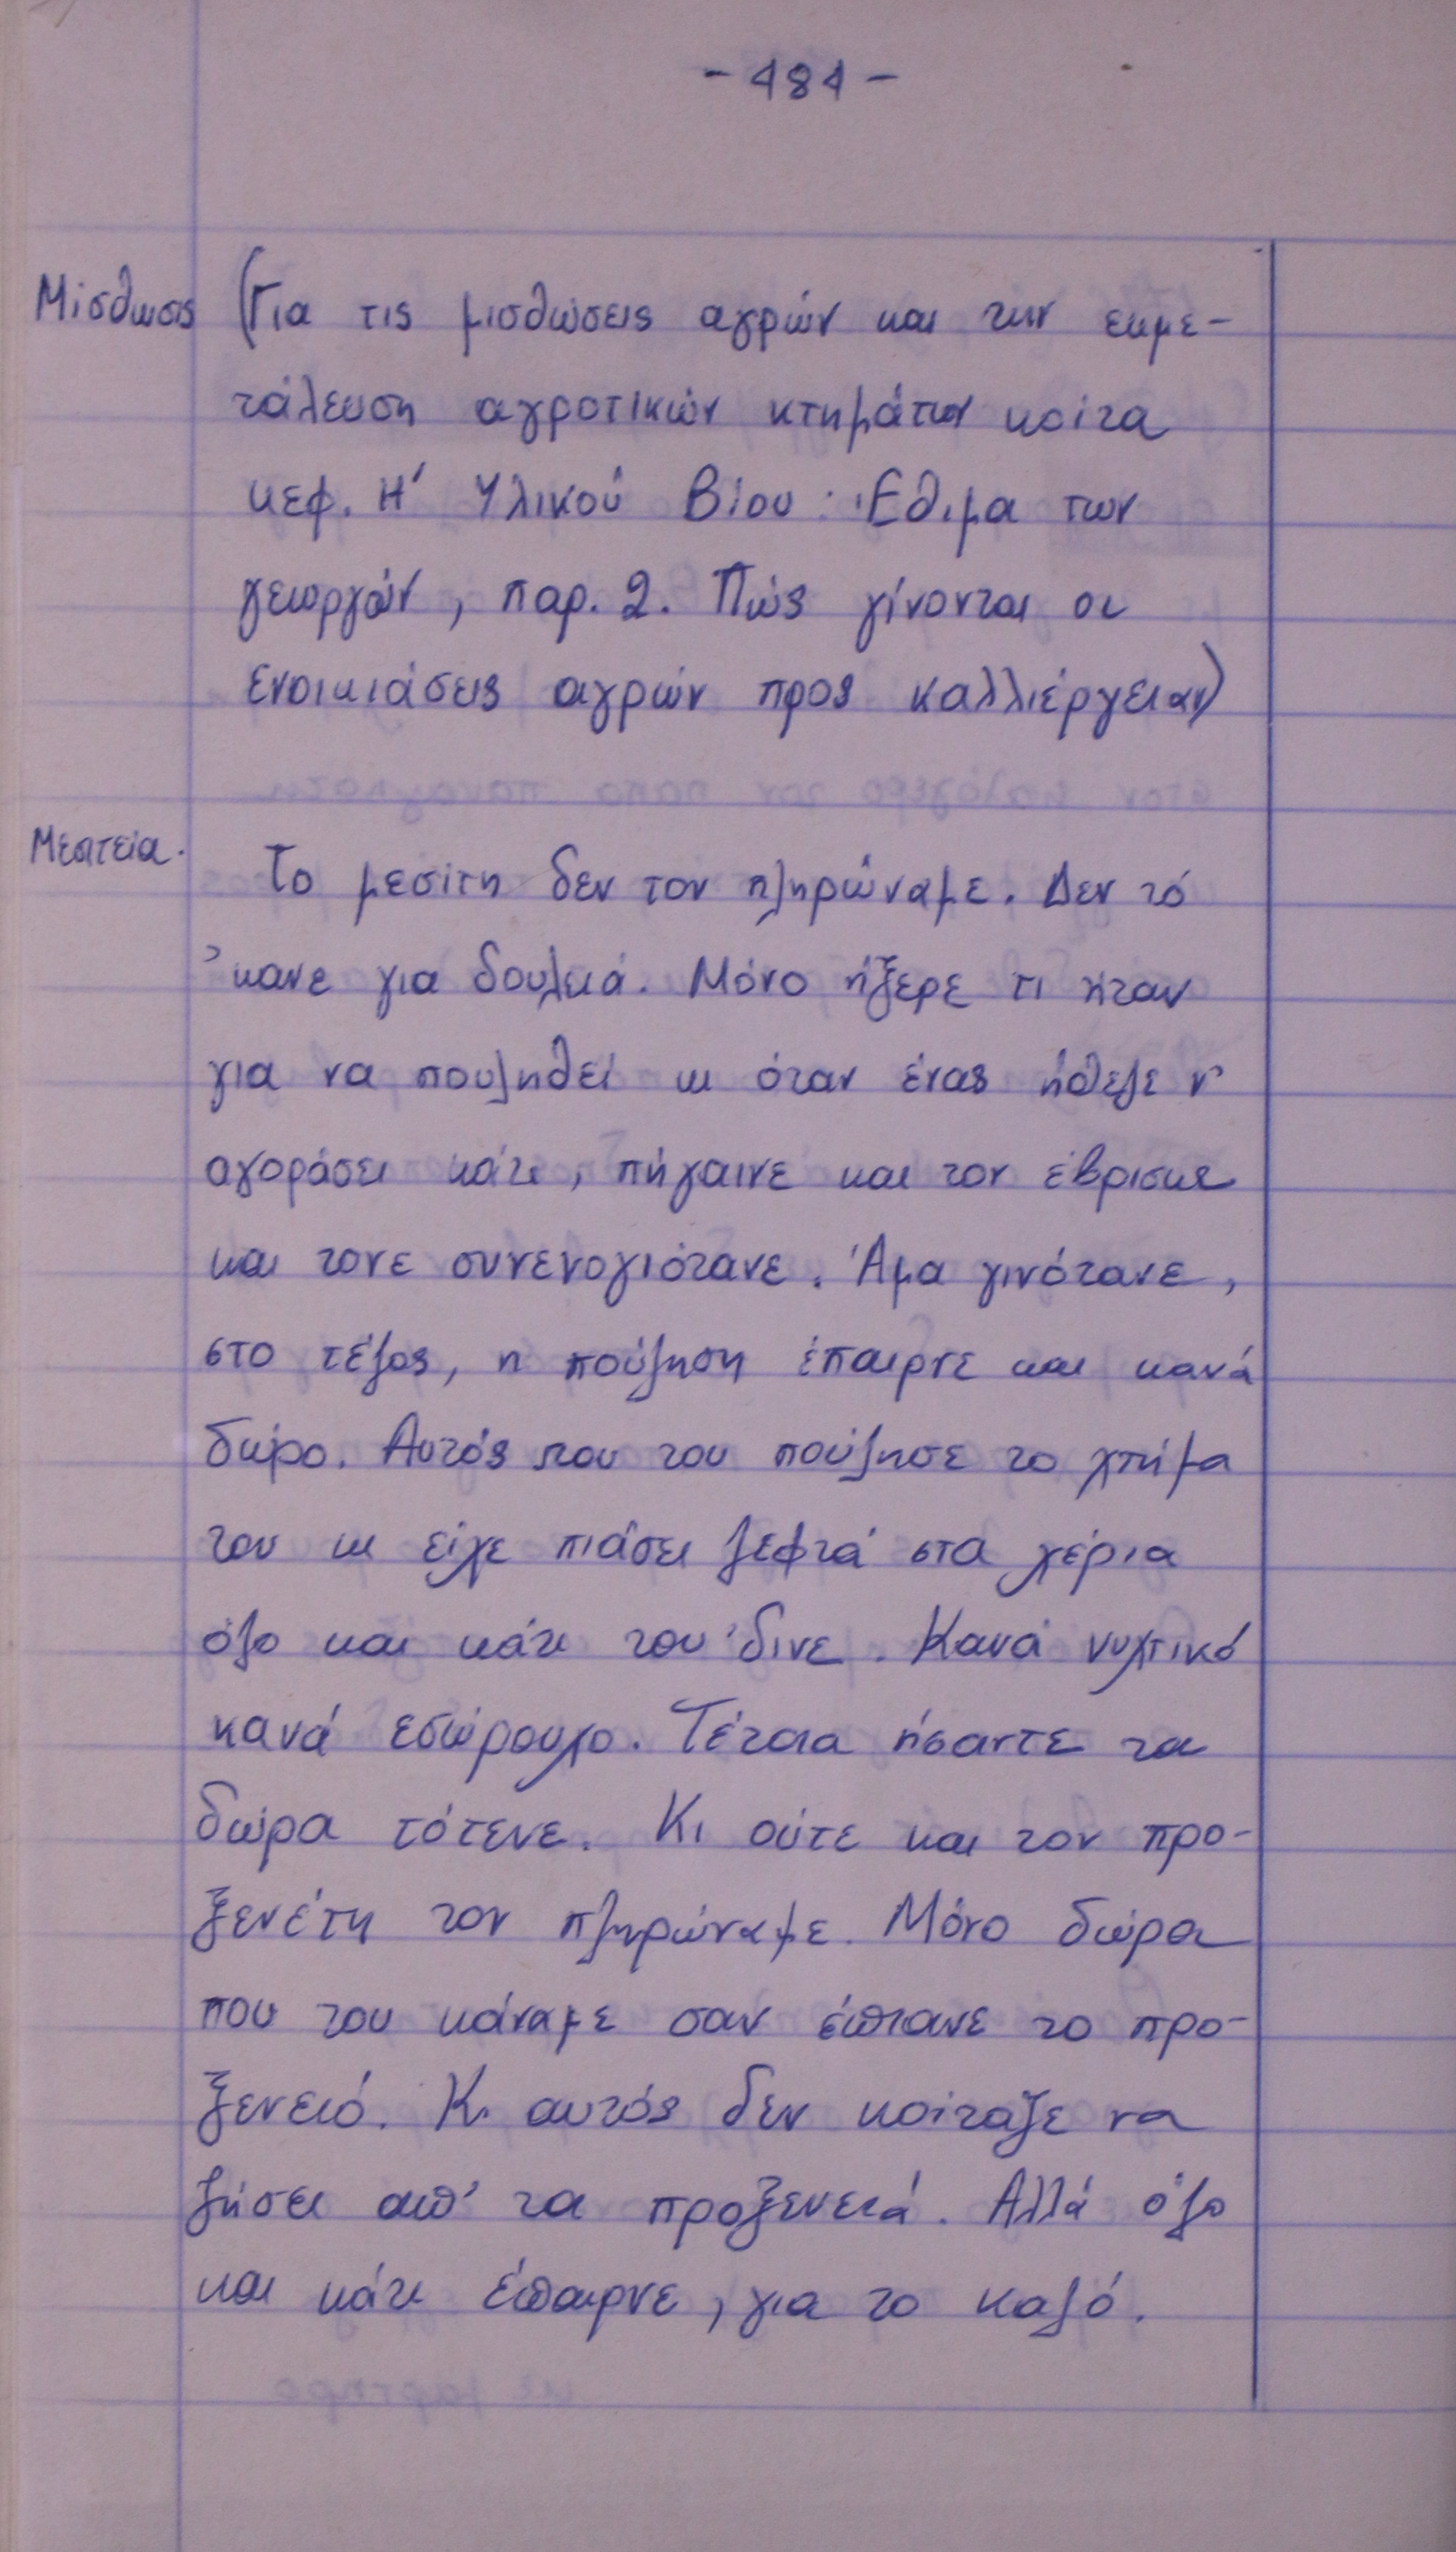 - 484 -
Μίσθωσις (Για τις μισθώσεις αγρών και την εκμε-
τάλευση αγροτικών κτημάτων κοίτα
κεφ. Η' Υλικού Βίου : Έθιμα των
γεωργών, παρ. 2. Πώς γίνονται οι
ενοικιάσεις αγρών προς καλλιέργειαν)
Μεσιτεία. Το μεσίτη δεν τον πληρώναμε. Δεν τό
'κανε για δουλειά. Μόνο ήξερε τι ήταν
για να πουληθεί κι όταν ένας ήθελε ν'
αγοράσει κάτι, πήγαινε και τον έβρισκε
και τονε συνενογιότανε. Άμα γινότανε,
στο τέλος, η πούληση έπαιρνε και κανά
δώρο. Αυτός που του πούλησε το χτήμα
του κι είχε πιάσει λεφτά στα χέρια
όλο και κάτι του 'δινε. Κανά νυχτικό
κανά εσώρουχο. Τέτοια ήσαντε τα
δώρα τότενε. Κι ούτε και τον προ-
ξενέτη τον πληρώναμε. Μόνο δώρα
που του κάναμε σαν έφτιανε το προ-
ξενειό. Κι αυτός δεν κοίταζε να
ζήσει απ' τα προξενειά. Αλλά όλο
και κάτι έπαιρνε, για το καλό.